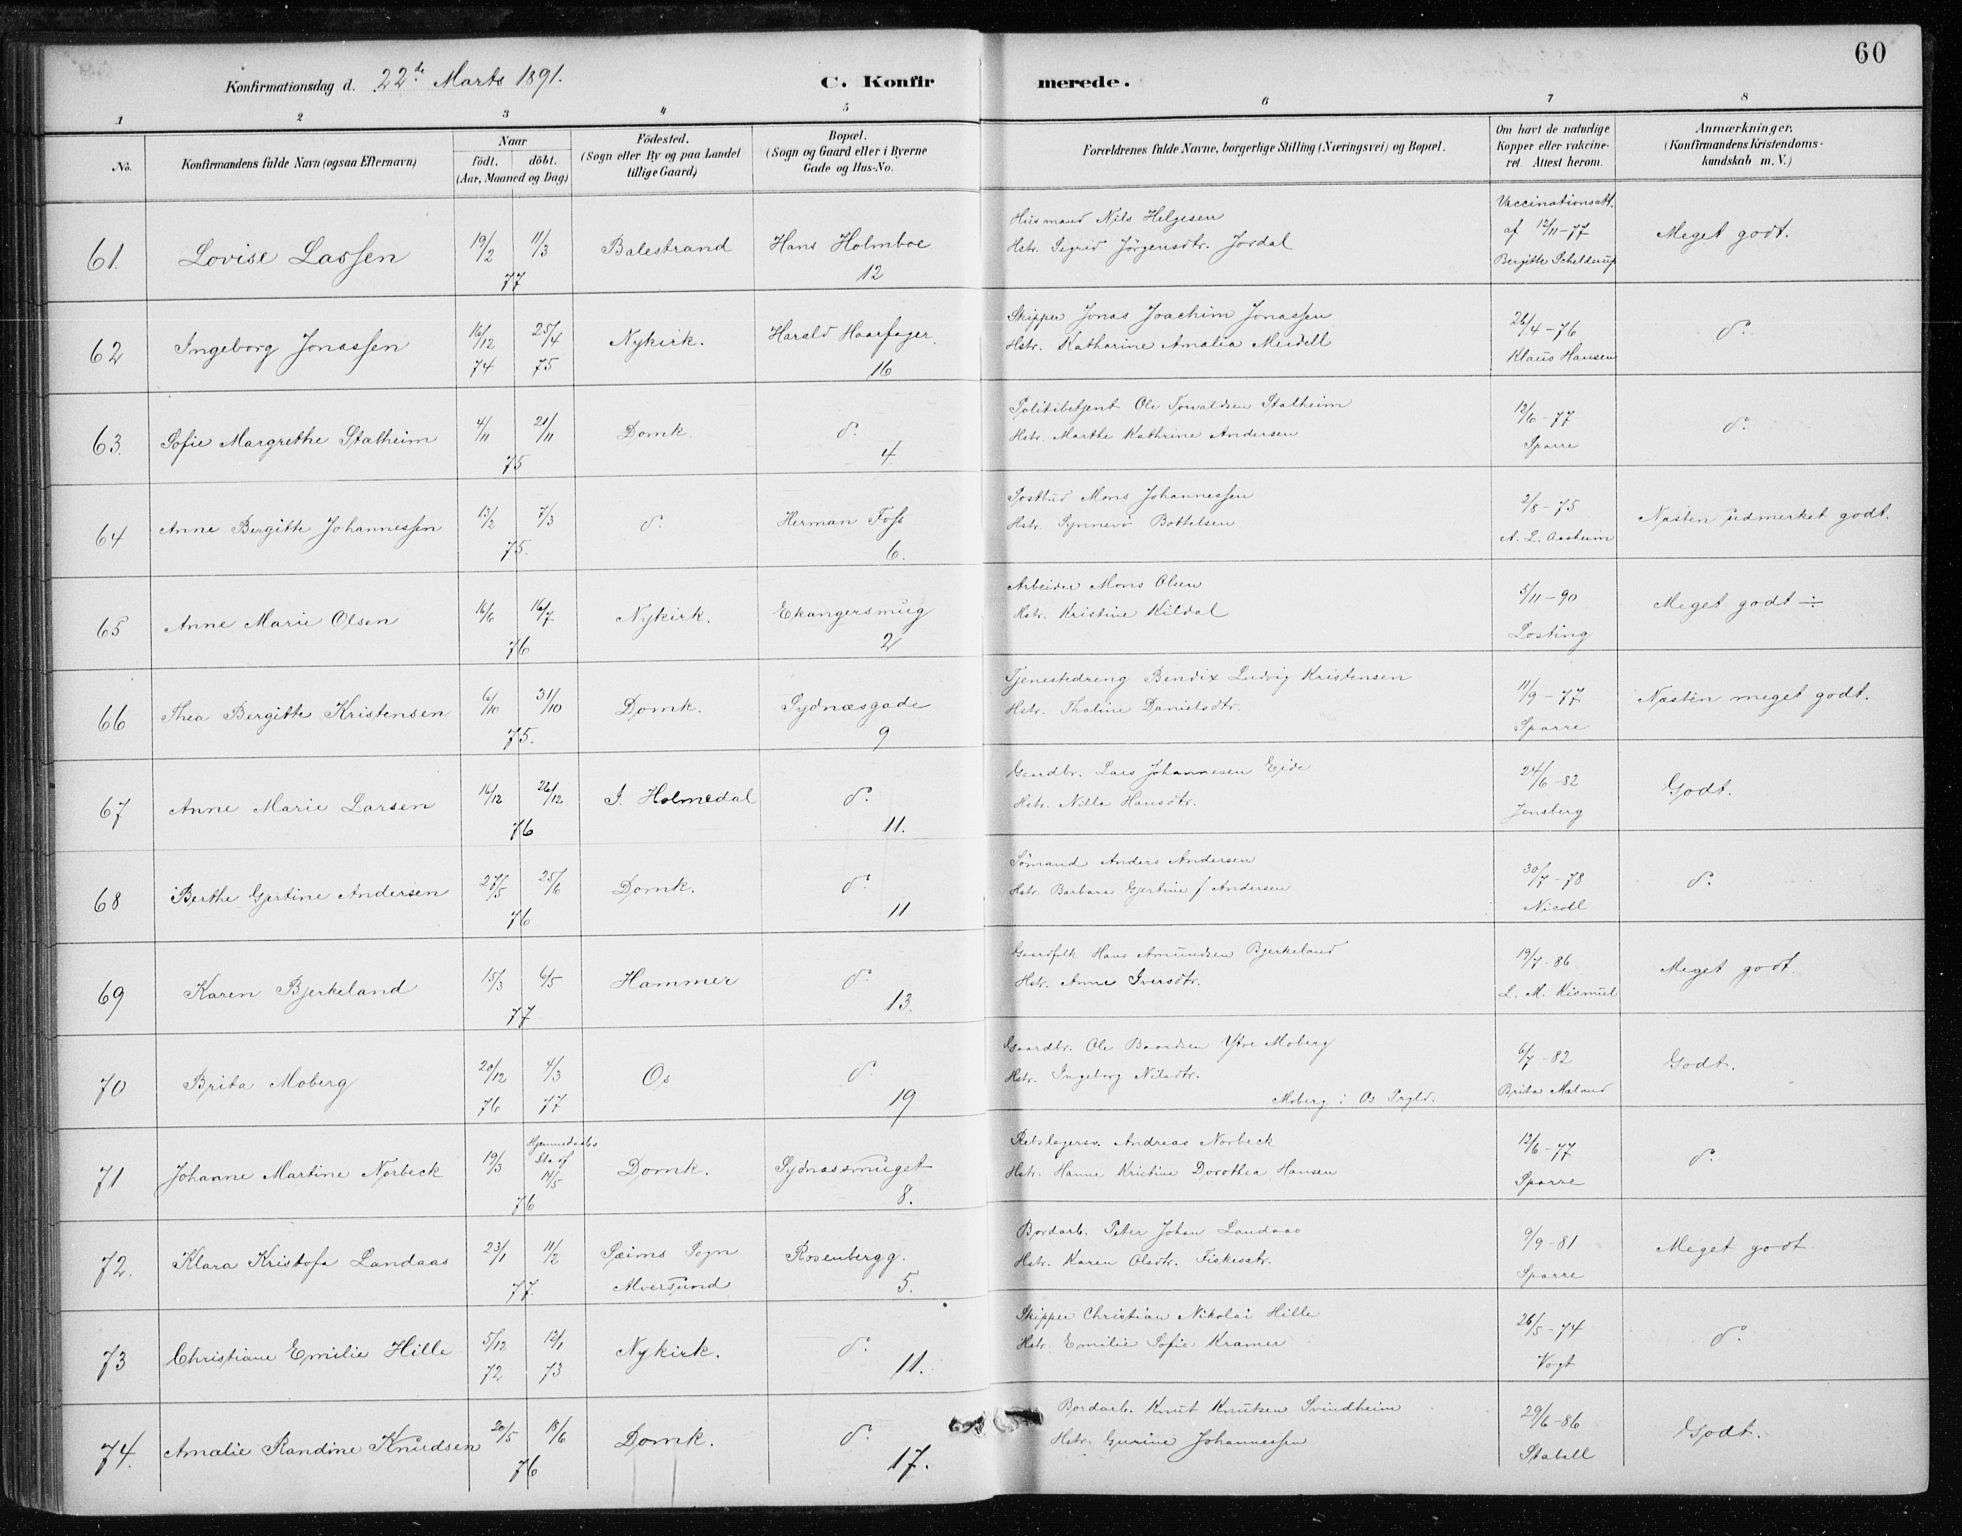 60
Konfirmationsdag d. 22de Marts 1891.
C. Konfirmerede.
1 2 3 4 5 6 7 8
No.
Konfirmandens fulde Navn (ogsaa Efternavn)
Naar
födt. döbt.
(Aar, Maaned og Dag)
Födested.
(Sogn eller By og paa Landet
tillige Gaard)
Bopæl.
(Sogn og Gaard eller i Byerne
Gade og Hus-No.
Forældrenes fulde Navne, borgerlige Stilling (Næringsvei) og Bopæl.
Om havt de naturlige
Kopper eller vakcine-
ret. Attest herom.
Anmærkninger.
(Konfirmandens Kristendoms-
kundskab m. V.)
61. Lovise Lassen 19/2 11/3 77 Balestrand Hans Holmboe 12
Husmand Nils Helgesen
Hstr. Sigrid Jørgensdtr. Jordal
Vaccinationsatt.
af 12/11-77
Bergitte Schelderup
Meget godt.
62 Ingeborg Jonassen 16/12 74 25/4 75 Nykirk. Harald Haarfager. 16
Skipper Jonas Joachim Jonassen
Hstr. Katharine Amalia Meidell
26/4-76
Klaus Hansen
do
63. Sofie Margrethe Stalheim 4/11 21/11 75 Domk. do 4
Politibetjent Ole Torvaldsen Stalheim
Hstr. Marthe Kathrine Andersen
12/6-77
Sparre
do
64 Anne Bergitte Johannessen 13/2 7/3 75. do Herman Foss 6.
Postbud Mons Johannessen
Hstr. Synnevø Bottelsen
2/8-75
A. L. Aasheim
Næsten udmerket godt.
65 Anne Marie Olsen 16/6 16/7 76 Nykirk. Ekangersmug 2
Arbeider Mons Olsen
Hstr. Kristine Kildal
5/11-90
Losting
Meget godt ÷
66 Thea Bergitte Kristensen 6/10 31/10 75. Domk. Sydnæsgade 9
Tjenestedreng Bendix Ludvig Kristensen
Hstr. Thaline Danielsdtr.
11/9-77
Sparre
Næsten meget godt.
67 Anne Marie Larsen 16/12 26/12 76 I. Holmedal do 11.
Gaardbr. Lars Johannesen Eide
Hstr. Nille Hansdtr.
24/6-82
Jensberg
Godt.
68 Berthe Gjertine Andersen 27/5 25/6 76 Domk. do 11
Sömand Anders Andersen
Hstr. Barbara Gjertine f Andersen
30/7-78
Nicoll
do
69 Karen Bjerkeland 15/3 6/5 77 Hammer do 13.
Gaardfolk Hans Amundsen Bjerkeland
Hstr. Anne Iversdtr.
19/7-86
L. M. Kismul
Meget godt.
70 Brita Moberg 20/12 76 4/3 77 Os do 19
Gaardbr. Ole Baardsen Ytre Moberg
Hstr. Ingeborg Nilsdtr.
Moberg i Os Prgld.
6/7-82
Brita Mæland
Godt.
71 Johanne Martine Norbeck 19/3 Hjemmedaabs Staf 14/5 76 Domk. Sydnæssmuget 8.
Rebslagersv. Andreas Norbeck
Hstr. Hanne Kristine Dorothea Hansen
12/6-77
Sparre
do
72. Klara Kristofa Landaas 23/1 11/2 77. Sæims Sogn Alversund Rosenbergg. 5.
Bordarb. Peter Johan Landaas
Hstr. Karen Olsdtr. Fiskesætr.
9/9-81
Sparre
Meget godt.
73 Christiane Emilie Hille 5/12 72 12/1 73 Nykirk. do 11.
Skipper Christian Nikolai Hille
Hstr. Emilie Sofie Kramer
26/5-74
Vogt
do
74. Amalie Randine Knudsen 20/5 18/6 76 Domk. do 17.
Bordarb. Knut Knutsen Svindheim
Hstr. Gurine Johannessen
29/6-86
Stabell
Godt.